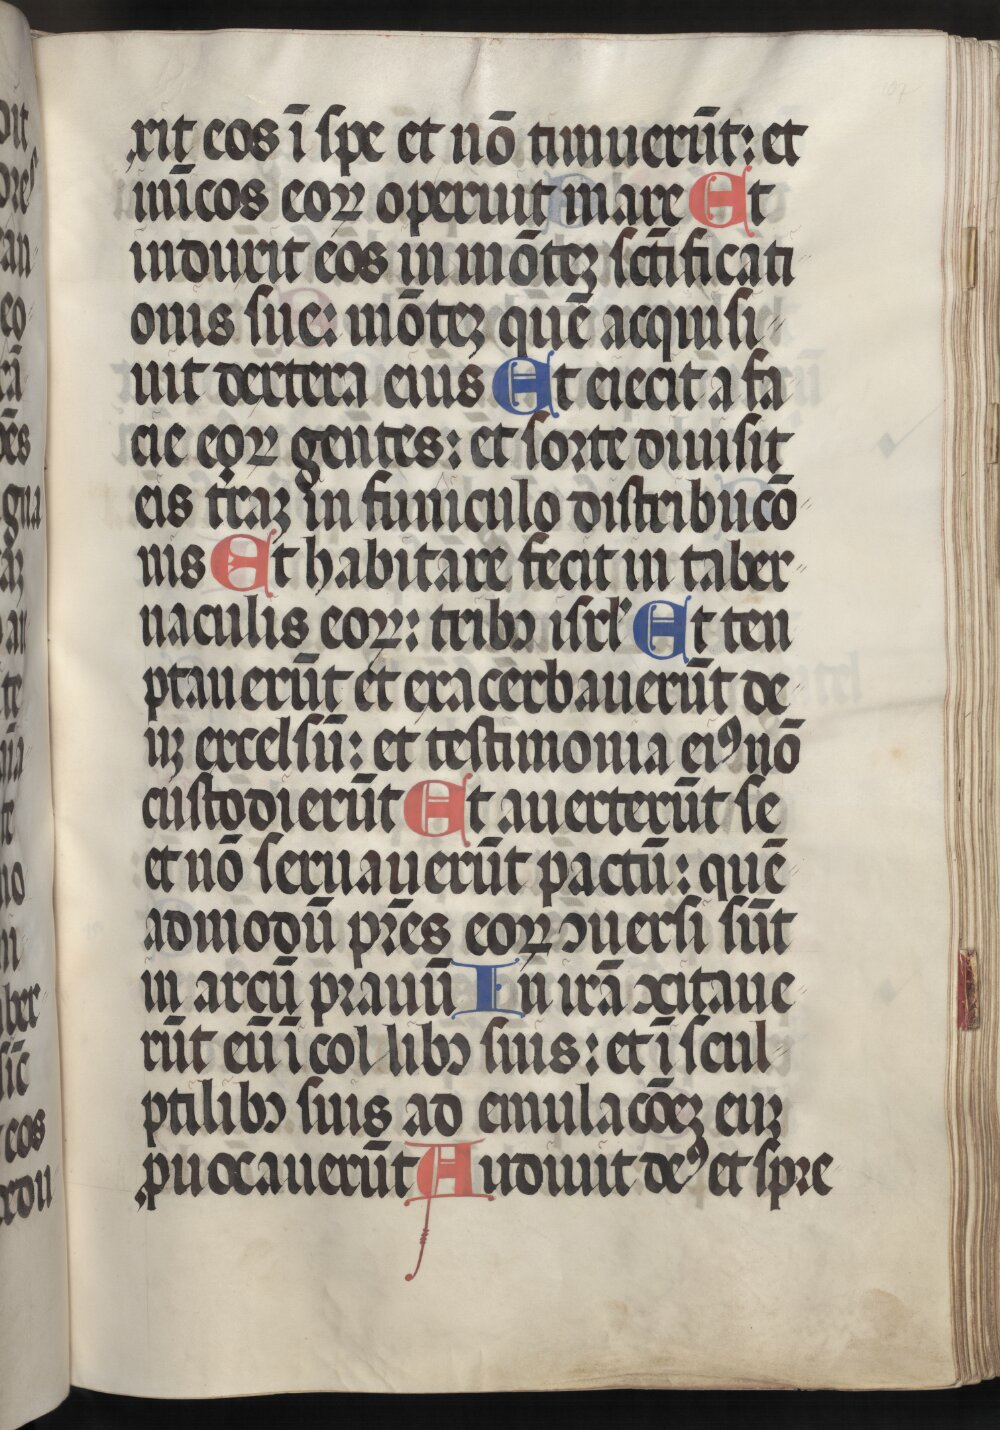 xit eos ī spe et nō timuerūt: et
inīcos eoꝝ operuit mare Et
induxit eos in mōteꝫ sctīficati
onis sue: mōteꝫ quē acquisi
uit dextera eius Et eiecit a fa
cie eoꝝ gentes: et sorte diuisit
eis t̄raꝫ in funiculo distribucō
nis Et habitare fecit in taber
naculis eoꝝ: tribꝰ isrl' Et ten
ptauerūt et exacerbauerūt de
uꝫ excelsū: et testimonia eiꝰ nō
custodierūt Et auerterūt se
et nō seruauerūt pactū: quē
admodū pr̄es eoꝝ ꝯuersi sūt
in arcū prauū In irā ꝯcitaue
rūt eū ī collibꝰ suis: et ī scul
ptilibꝰ suis ad emulacōeꝫ euꝫ
ꝓuocauerūt Audiuit deꝰ et spre